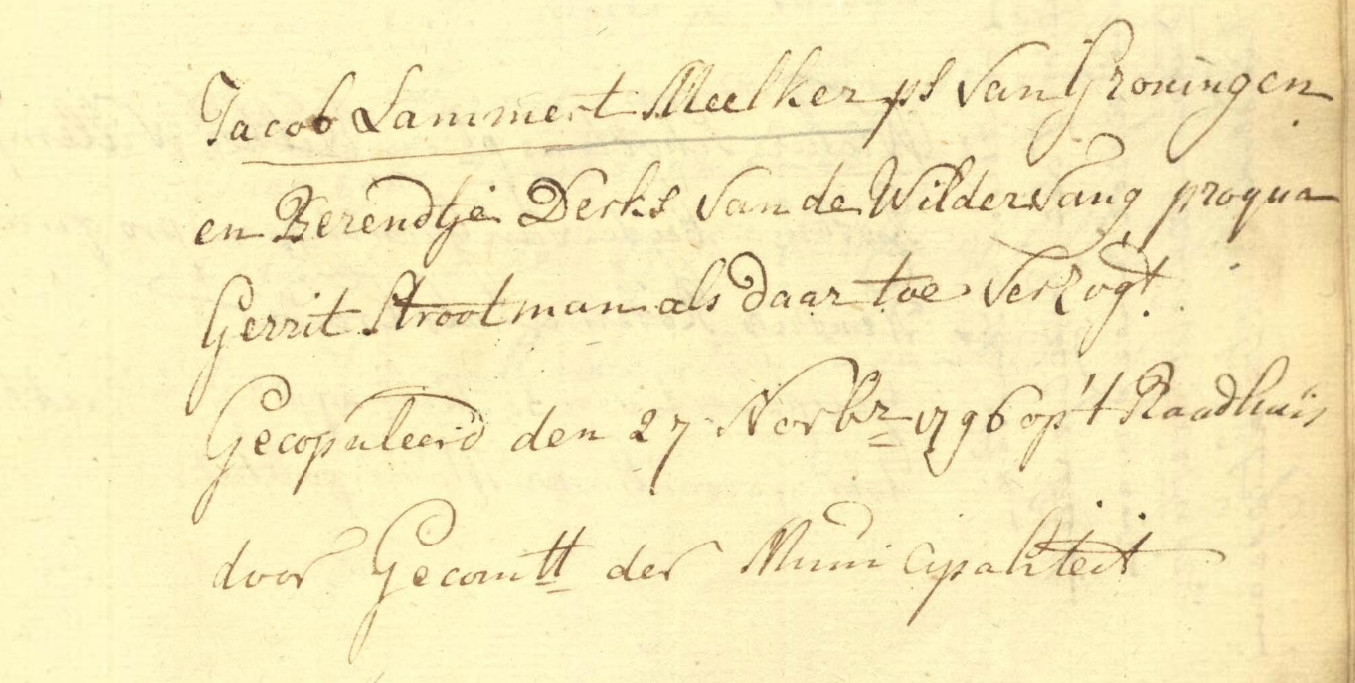 Jacob Lammert Meelker ps van Groningen
en Berendtje Derks van de Wildervang proqua
Gerrit Strootman als daar toe verzogt.
Gecopuleerd den 27 Novbr 1796 op't Raadhuis
door Gecomtt der Municipaliteit